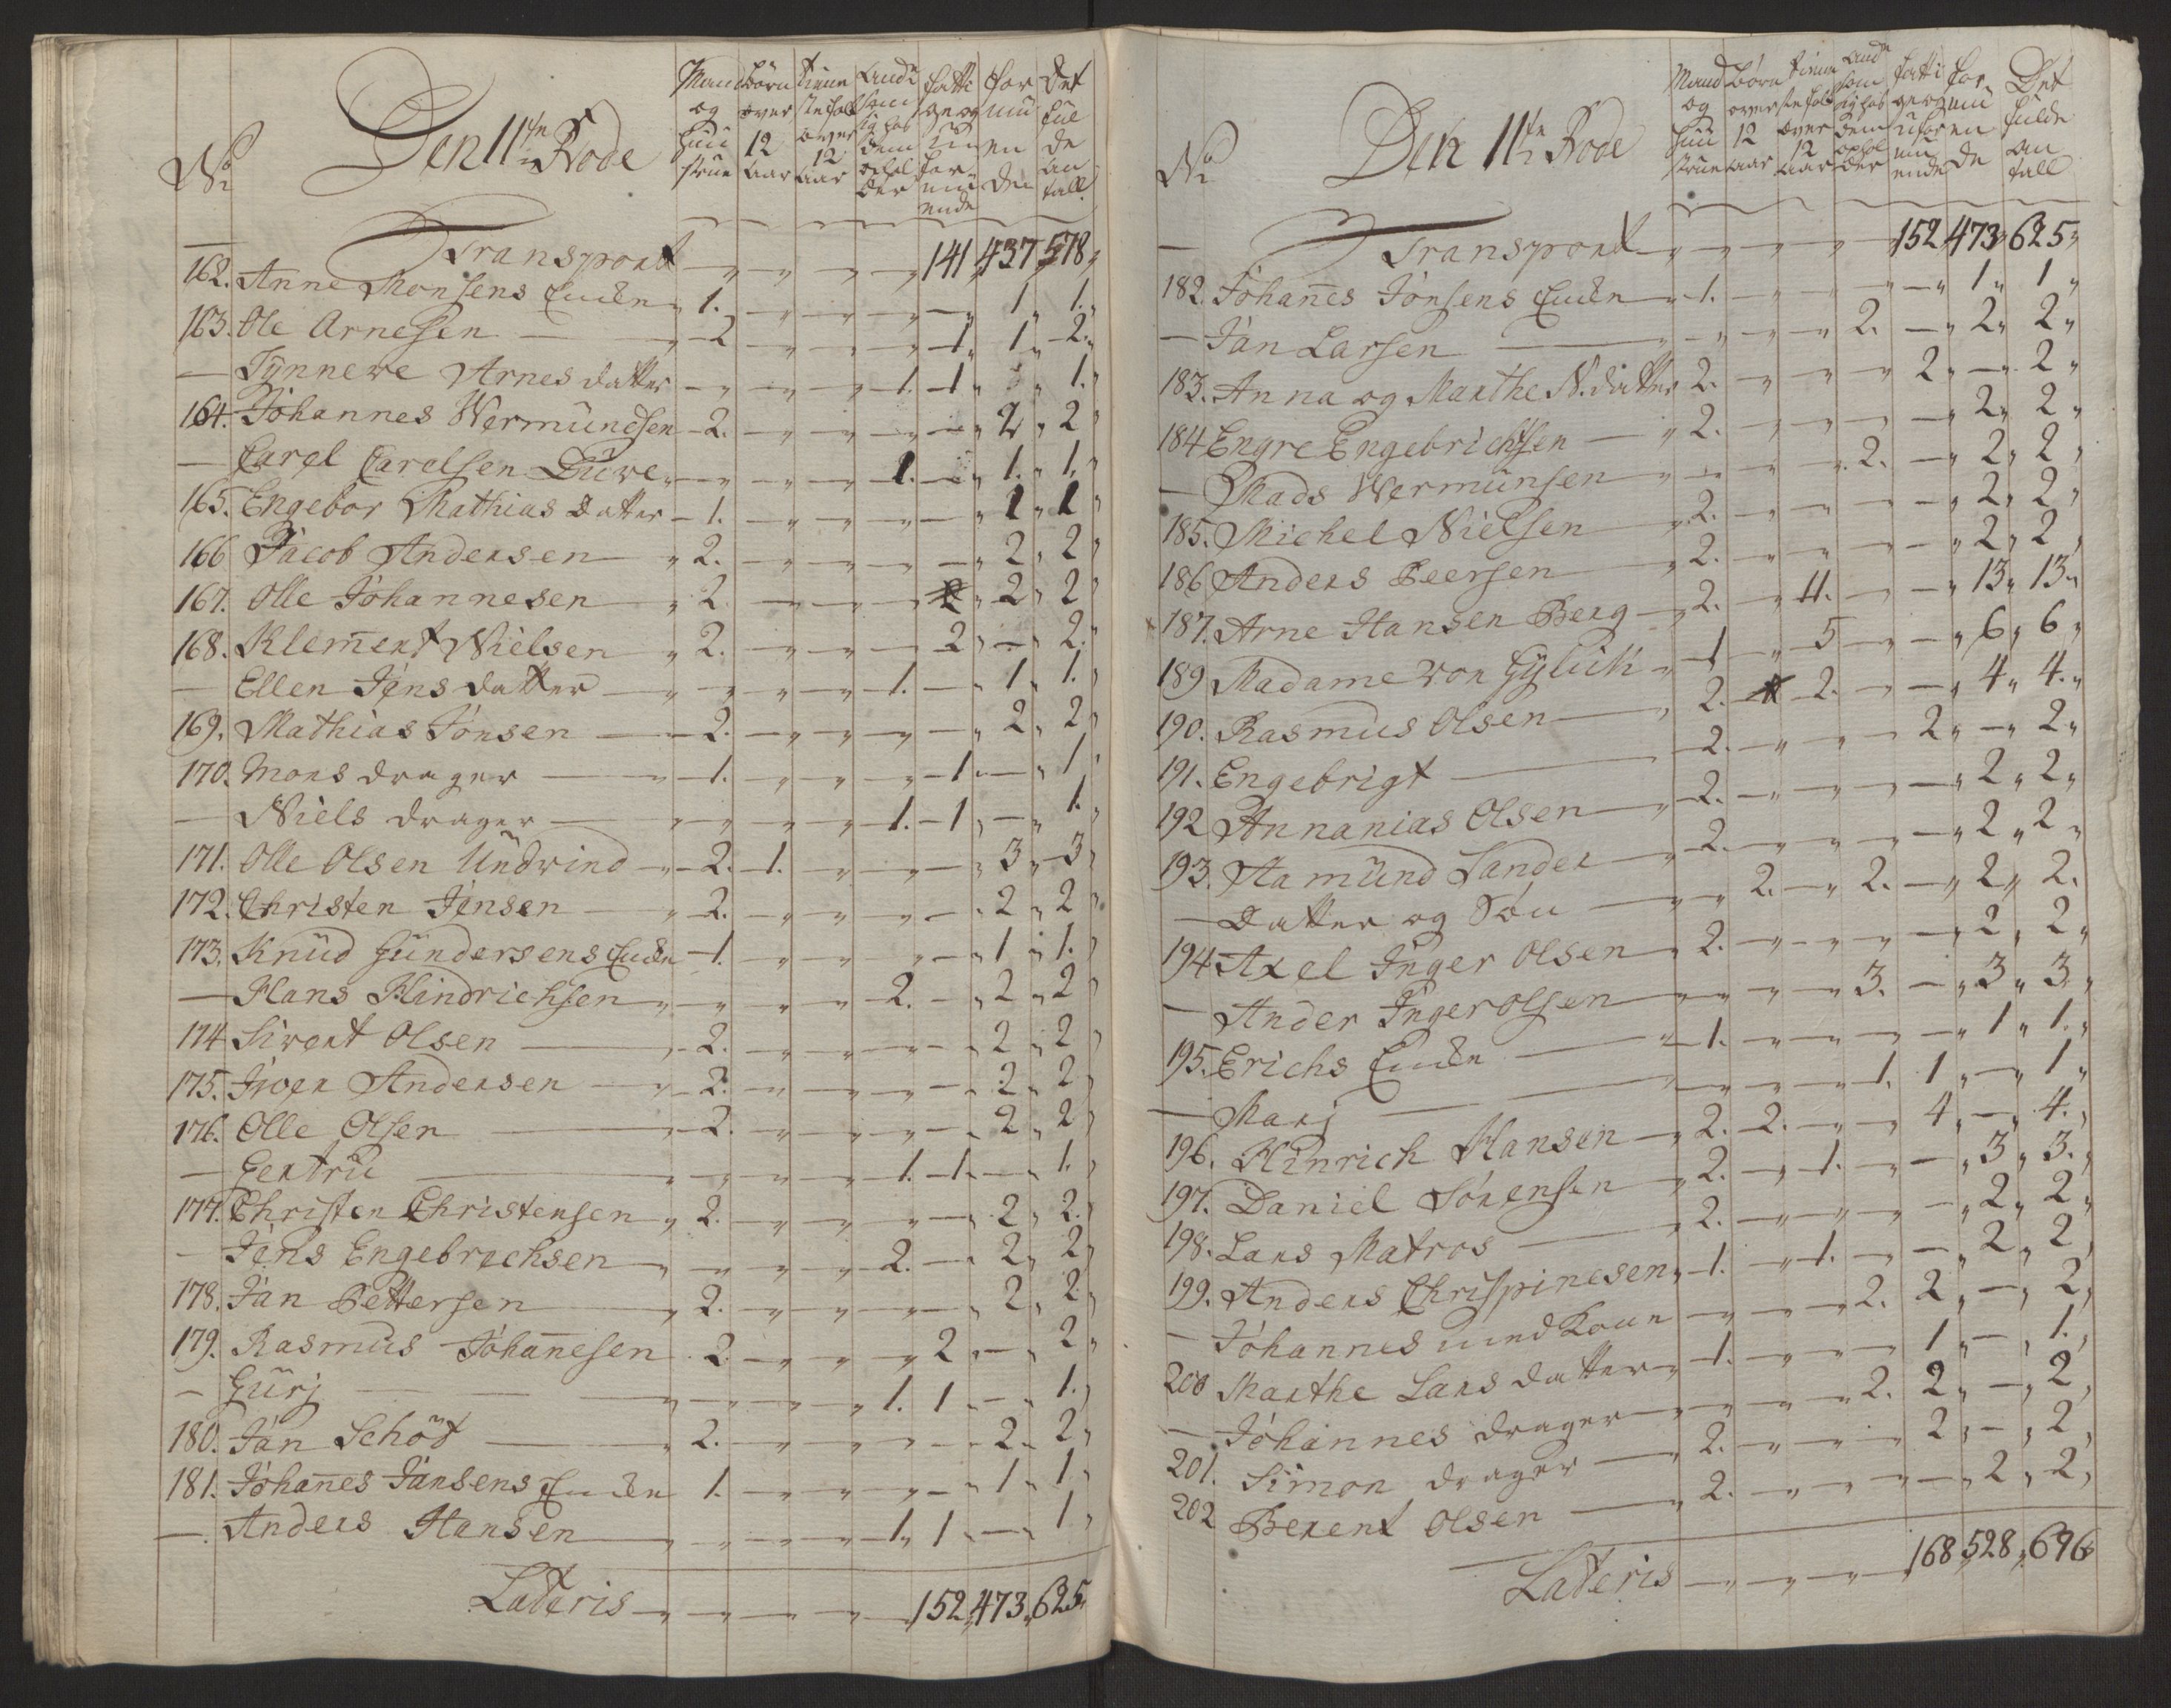 No
Den 11te Rode
Mand og Huu strue
Børn over 12 aar
tiene ste folk over 12 aar
Andre som sig hos dem ophol der
fatti ge og Uen for mu ende
for mu en de
Det ful de an tall
Transport — 141 437 578
162. Anne Monsens Encken 1. — 1 1.
163. Ole Arnesen — 2 — 1 1 2.
— Tÿnnere Arnes datter — 1. 1 — 1.
164. Johannes Wermundsen 2. — 2 2
— Carel Carelsen Duve — 1. — 1. 1.
165. Engebor Mathias datter 1. — 1 1
166 Jacob Andersen — 2. — 2 2
167. Olle Johannesen — 2 — 2 2
168. Klement Nielsen 2. — 2 — 2.
— Ellen Jens datter — 1. — 1 1.
169. Mathias Jonsen — 2. — 2 2
170. Mons drager — 1. — 1 — 1
— Niels drager — 1. 1 — 1.
171. Olle Olsen Undvind 2. 1. — 3 3
172. Christen Jensen — 2. — 2 2
173. Knud Gundersens Encken 1. — 1 1.
— Hans Hindrichsen — 2. — 2 2
174 Sivert Olsen — 2. — 2 2
175. Iver Andersen — 2. — 2 2
176. Olle Olsen — 2. — 2 2
— Gertru — 1. 1 — 1.
177. Christen Christensen 2. — 2 2.
— Jens Engebrechsen — 2. — 2 2
178. Jan Pettersen — 2. — 2 2
179. Rasmus Johanesen 2. — 2 — 2
— Gurj — 1. 1 — 1.
180. Jan Schöt — 2. — 2 2
181. Johanes Jansens Encken 1. — 1 1
— Anders Hansen — 1. 1 — 1
Lateris — 152 473 625
No
Den 11te Rode
Mand og Huu strue
Børn over 12 aar
tiene ste folk over 12 aar
And som sig hos dem ophol der
fatti ge og ufor mu ende
for mu en de
Det fulde an tall
Transport — 152 473 625
182. Johanes Jonsens Encken 1. — 1 1
— Jan Larsen — 2. — 2 2
183. Anna og Marthe N. datter 2. — 2 — 2
184 Engre Engebrichtsen — 2. — 2 2
— Mads Wermunsen — 2. — 2 2
185. Michel Nielsen — 2. — 2 2
186 Anders Peersen — 2. — 2 2
187. Arne Hansen Berg — 2. — 11. — 13 13
189 Madame von Gyluck 1 — 5 — 6 6
190. Rasmus Olsen — 2. — 2. — 4 4.
191. Engebrigt — 2. — 2 — 2
192 Annanias Olsen — 2. — 2 2
193. Hamund Sander — 2. — 2 2
— Datter og Søn — 2. — 2. — 2 2.
194 Axel Inger Olsen 2. — 2 2
— Ander Ingerolsen — 3. — 3 3.
195. Erichs Encken — 1. — 1 1.
— Marj — 1. 1 — 1
196. Hinrich Hansen — 2. 2. — 4 — 4.
197. Daniel Sörensen 2. — 1. — 3 3.
198. Lars Matros — 2. — 2 2
199. Anders Chrispinesen 1. — 1. — 2 2
— Johannes med Kone — 2. 2 — 2
200 Marthe Lars datter 1. — 1 — 1.
— Johannes drager — 2. 2 — 2
201. Simon drager — 2. — 2 — 2
202 Berent Olsen — 2. — 2 2
Lateris — 168 528 696